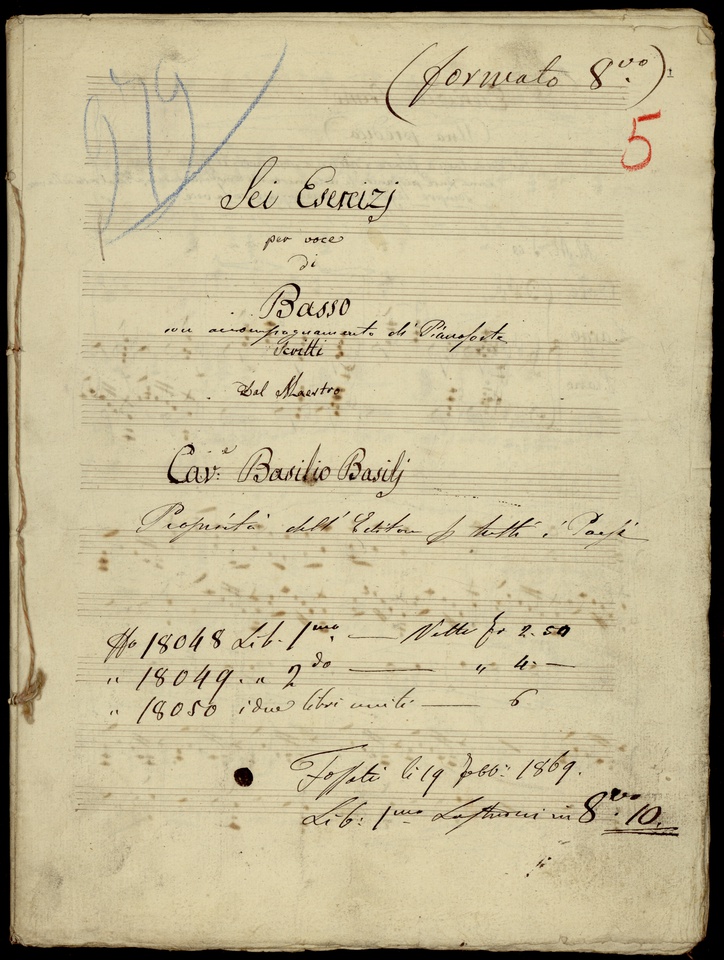 (formato 8.vo)
979
5
Sei Esercizj
per voce
di
Basso
con accompagnamento di Pianoforte
Scritti
Dal Maestro
Cav.e Basilio Basilj
Proprietà dell' Editore p tutti i Paesi
18048 Lib. 1mo — Netti fr 2.50
" 18049. " 2do — " 4.—
" 18050 i due libri uniti — 6
Fossati li 19 Febb: 1869.
Lib: 1mo Lastroni in 8.vo 10.